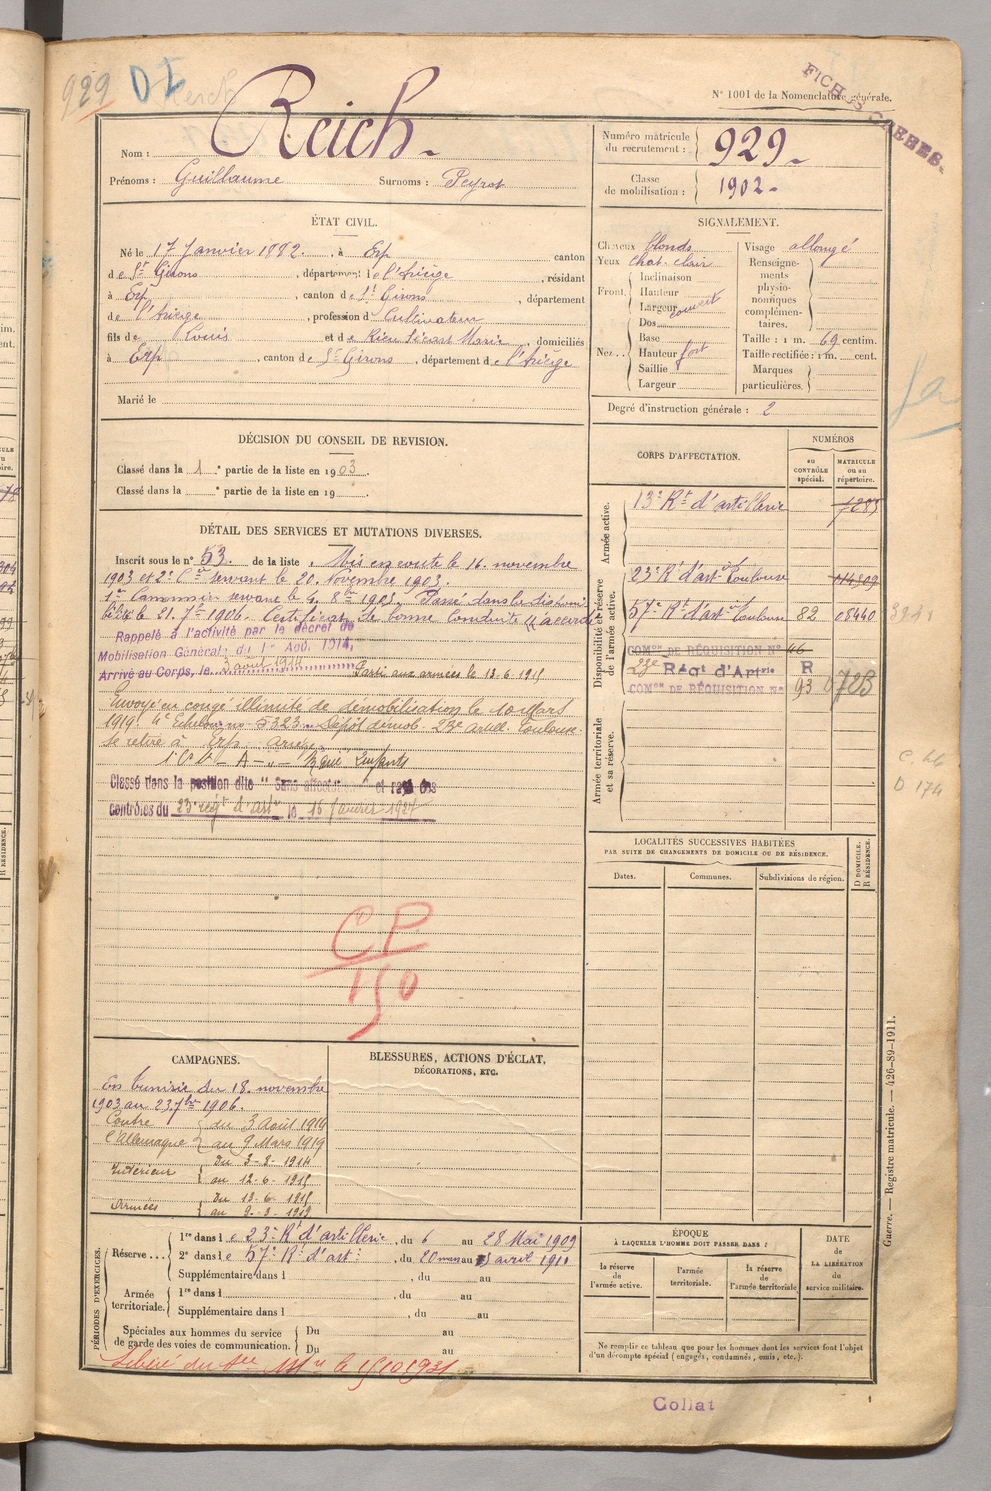 929 DI
N° 1001 de la Nomenclature générale.
FICHES
Nom : Reich
Prénoms : Guillaume Surnoms : Peyrot
Numéro matricule du recrutement : 929
Classe de mobilisation : 1902
ÉTAT CIVIL.
Né le 17 Janvier 1882, à Erp canton
de St Girons, département de l'Ariège, résidant
à Erp, canton de St Girons, département
de l'Ariège, profession de Cultivateur
fils de Louis et de Rieu Sicart Marie, domiciliés
à Erp, canton de St Girons, département de l'Ariège
Marié le
SIGNALEMENT.
Cheveux blonds
Yeux chat. clair
Front. Inclinaison
Hauteur
Largeur couvert
Nez. Dos
Base
Hauteur fort
Saillie
Largeur
Visage allongé
Renseignements physionomiques complémentaires.
Taille : 1 m. 69 centim.
Taille rectifiée : 1 m. cent.
Marques particulières.
Degré d'instruction générale : 2
DÉCISION DU CONSEIL DE REVISION.
Classé dans la 1e partie de la liste en 1903.
Classé dans la e partie de la liste en 19
CORPS D'AFFECTATION.
NUMÉROS
au CONTRÔLE spécial.
MATRICULE ou au répertoire.
Armée active.
13e Rt d'artillerie 7285
Disponibilité et réserve de l'armée active.
23e Rt d'art Toulouse
57e Rt d'art Toulouse 82 08440
COMon DE RÉQUISITION N° 46
23e Régt d'Artrie R
COMon DE RÉQUISITION N° 93
Armée territoriale et sa réserve.
DÉTAIL DES SERVICES ET MUTATIONS DIVERSES.
Inscrit sous le n° 53 de la liste. Mis en route le 16 novembre
1903 et 2e Cer servant le 20 Novembre 1903.
1er Canonnier servant le 4 8bre 1905. Passé dans la disponi
bilité le 21 7bre 1906. Certificat de bonne conduite accordé
Rappelé à l'activité par le décret de
Mobilisation Générale du 1er Août 1914,
Arrivé au Corps, le 3 août 1914 Parti aux armées le 13-6-1915
Envoyé en congé illimité de démobilisation le 10 Mars
1919 4e Echelon no 5323 Dépôt démob. 23e artill. Toulouse.
Se retire à Erp, Ariège
Classé dans la position dite " Sans affectation " et rayé des
contrôles du 23e régt d'artie le 15 février 1927
CP
150
LOCALITÉS SUCCESSIVES HABITÉES
PAR SUITE DE CHANGEMENTS DE DOMICILE OU DE RÉSIDENCE.
Dates. Communes. Subdivisions de région. D DOMICILE. R RÉSIDENCE.
C. 46
D 174
CAMPAGNES.
En Tunisie du 18 novembre
1903 au 23 7bre 1906.
Contre l'Allemagne du 3 Août 1914
au 9 Mars 1919
Intérieur du 3-8-1914
au 12-6-1915
Armées du 13-6-1915
au 9-3-1919
BLESSURES, ACTIONS D'ÉCLAT,
DÉCORATIONS, ETC.
PÉRIODES D'EXERCICES.
Réserve... 1re dans le 23e Rt d'artillerie, du 6 au 28 Mai 1909
2e dans le 57e Rt d'art, du 20 mars au 5 avril 1911
Supplémentaire dans l , du au
Armée territoriale. 1re dans l , du au
Supplémentaire dans l , du au
Spéciales aux hommes du service de garde des voies de communication. Du au
Du au
Libéré du Sce Mre le 15/10/1931
ÉPOQUE
À LAQUELLE L'HOMME DOIT PASSER DANS :
la réserve de l'armée active.
l'armée territoriale.
la réserve de l'armée territoriale
DATE de LA LIBÉRATION du service militaire.
Ne remplir ce tableau que pour les hommes dont les services font l'objet
d'un décompte spécial (engagés, condamnés, omis, etc.).
Guerre. — Registre matricule. — 426-89-1911.
Collat